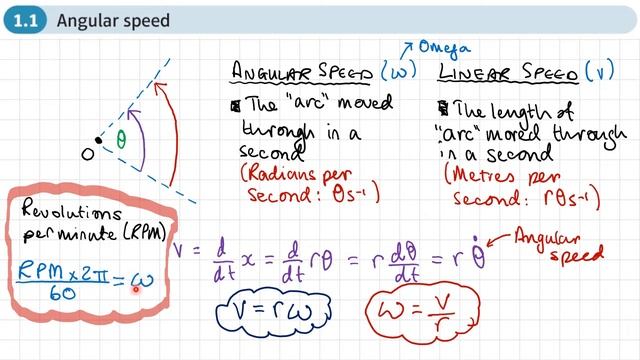 1.1 Angular speed
Omega
ANGULAR SPEED (ω)
The "arc" moved
through in a
second
(Radians per
second: θs⁻¹)
LINEAR SPEED (v)
The length of
"arc" moved through
in a second
(Metres per
second: rθs⁻¹)
θ
O
Revolutions
per minute (RPM)
RPM × 2π / 60 = ω
v = d/dt x = d/dt rθ = r dθ/dt = r θ̇
Angular
speed
v = rω
ω = v/r